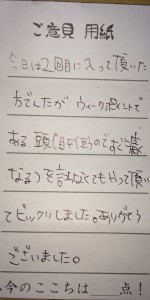 ご意見 用紙
今日は2回目に入って頂いた
方でしたが ウィークポイントで
ある 頭(目を使うのですぐ
なる)を言わなくてもやって頂い
てビックリしました。ありがとう
ございました。
今のここちは 点!